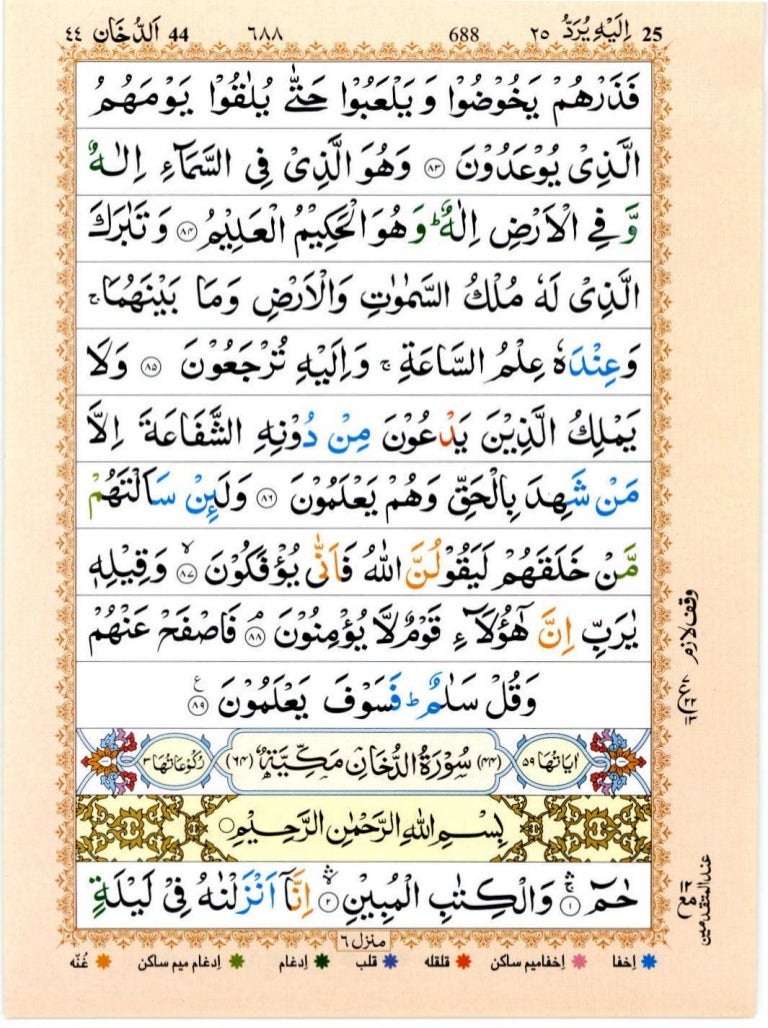 25 اِلَیْهِ یُرَدُّ ۲۵ 688 ۶۸۸ 44 اَلدُّخَان ۴۴
فَذَرْهُمْ یَخُوْضُوْا وَ یَلْعَبُوْا حَتّٰی یُلٰقُوْا یَوْمَهُمُ
الَّذِیْ یُوْعَدُوْنَ ﴿۸۳﴾ وَهُوَ الَّذِیْ فِی السَّمَآءِ اِلٰهٌ
وَّ فِی الْاَرْضِ اِلٰهٌ ؕ وَهُوَ الْحَكِیْمُ الْعَلِیْمُ ﴿۸۴﴾ وَ تَبٰرَكَ
الَّذِیْ لَهٗ مُلْكُ السَّمٰوٰتِ وَالْاَرْضِ وَمَا بَیْنَهُمَا ۚ
وَعِنْدَهٗ عِلْمُ السَّاعَةِ ۚ وَاِلَیْهِ تُرْجَعُوْنَ ﴿۸۵﴾ وَلَا
یَمْلِكُ الَّذِیْنَ یَدْعُوْنَ مِنْ دُوْنِهِ الشَّفَاعَةَ اِلَّا
مَنْ شَهِدَ بِالْحَقِّ وَهُمْ یَعْلَمُوْنَ ﴿۸۶﴾ وَلَىِٕنْ سَاَلْتَهُمْ
مَّنْ خَلَقَهُمْ لَیَقُوْلُنَّ اللّٰهُ فَاَنّٰی یُؤْفَكُوْنَ ﴿۸۷﴾ۙ وَقِیْلِهٖ
یٰرَبِّ اِنَّ هٰۤؤُلَآءِ قَوْمٌ لَّا یُؤْمِنُوْنَ ﴿۸۸﴾ۘ فَاصْفَحْ عَنْهُمْ
وَقُلْ سَلٰمٌ ؕ فَسَوْفَ یَعْلَمُوْنَ ﴿۸۹﴾ ع
وقف لازم
اٰیَاتُهَا ۵۹ (۴۴) سُوْرَةُ الدُّخَانِ مَكِّیَّةٌ (۶۴) رُكُوْعَاتُهَا ۳
بِسْمِ اللّٰهِ الرَّحْمٰنِ الرَّحِیْمِ
حٰمٓ ﴿۱﴾ۚۛ وَالْكِتٰبِ الْمُبِیْنِ ﴿۲﴾ۙۛ اِنَّاۤ اَنْزَلْنٰهُ فِیْ لَیْلَةٍ
عند المتقدمین
منزل ۶
اِخفا اِخفامیم ساکن قلقله قلب اِدغام اِدغام میم ساکن غُنّه